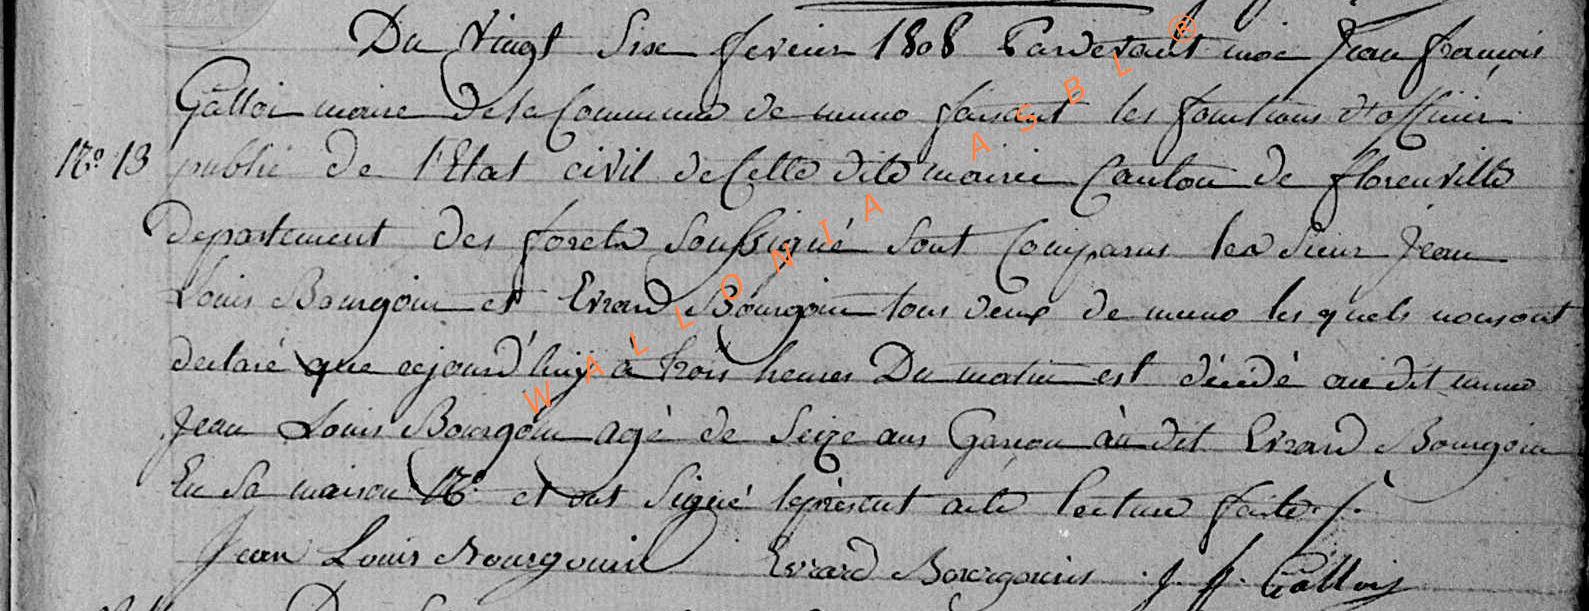 Du Vingt Six fevrier 1808 Pardevant moi Jean francois
Galloi maire de la Commune de muno faisant les fonctions d'officier
N.º 13 public de l'Etat civil de Celle dite mairie Canton de florenville
departement des forets soussigné sont Comparus les Sieur Jean
Louis Bourgoin et Evrard Bourgoin tous deux de muno les quels nous ont
declaré que cejourd'huy à trois heures Du matin est décédé au dit muno
Jean Louis Bourgoin agé de Seize ans Garcon àu dit Evrard Bourgoin
En Sa maison Nº. et ont Signé leprésent acte lecture faite ./.
Jean Louis Bourgouin Evrard Bourgouin J. f. Gallois
WALLONIA ASBL ®